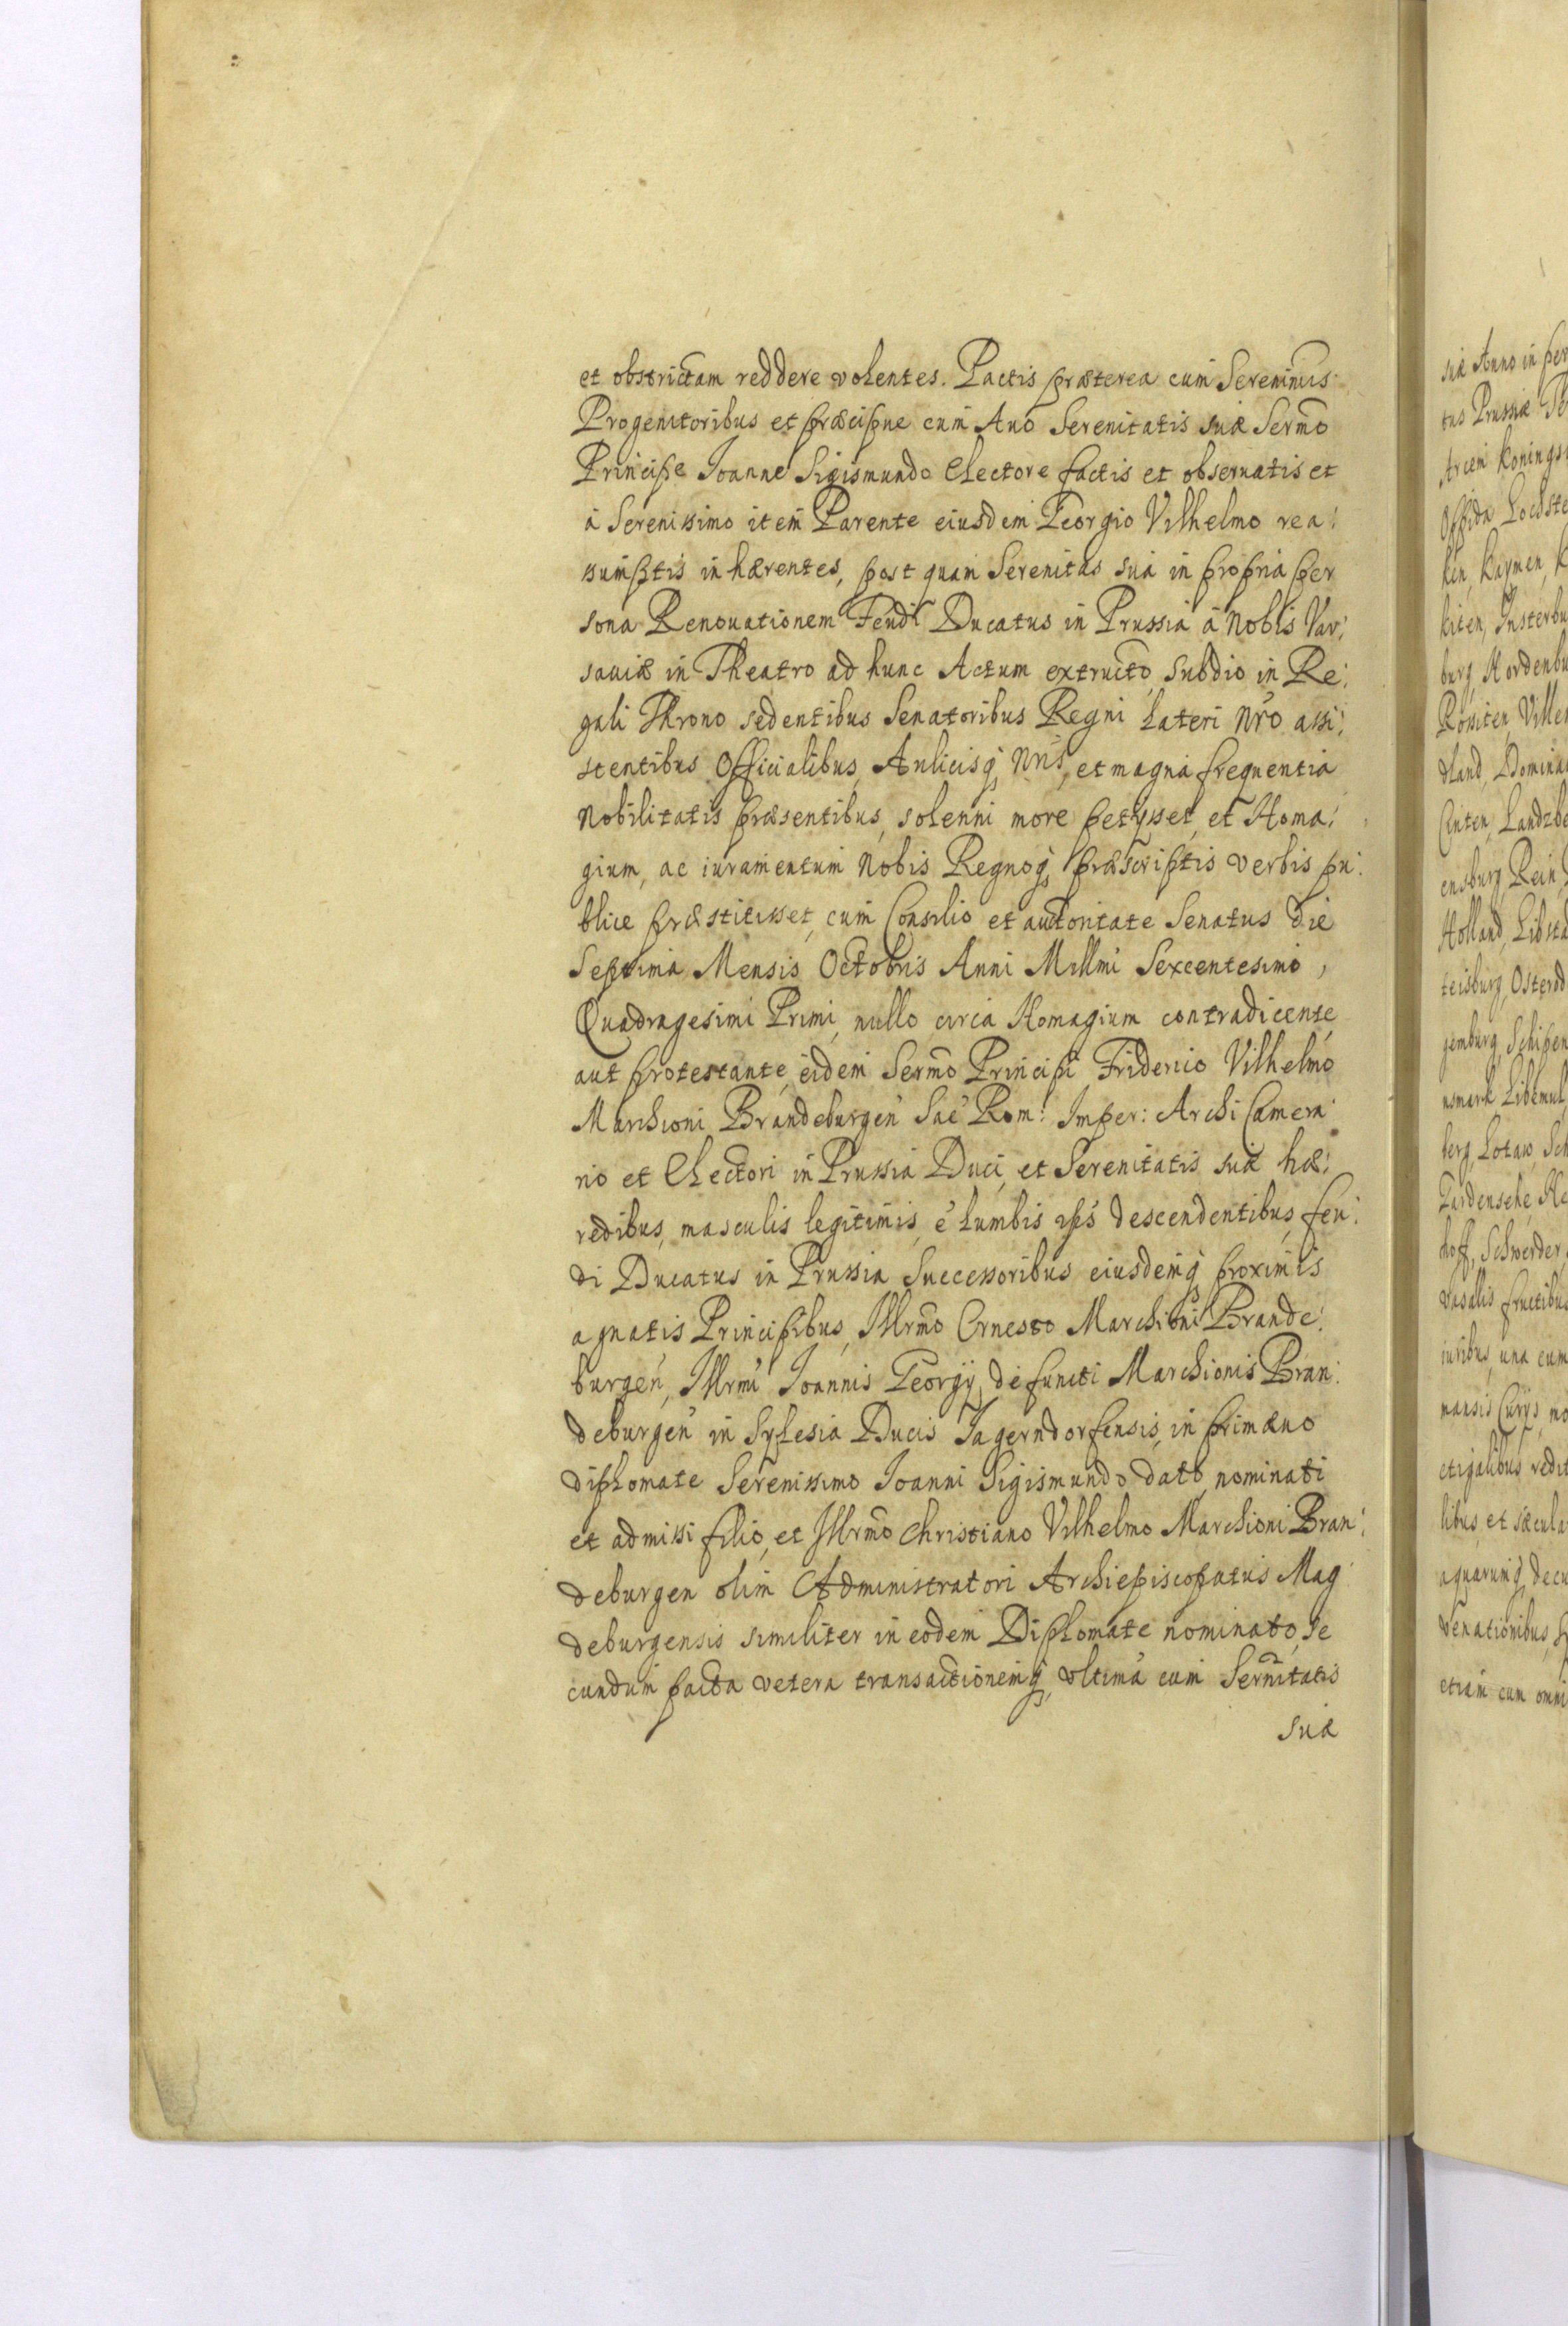 et obstrictam reddere volentes. Pactis præterea cum Serenimis
Progenitoribus et præcipue cum Auo Serenitatis suæ Sermo
Principe Joanne Sigismundo Electore factis et obseruatis et
à Serenissimo item Parente eiusdem Georgio Vilhelmo rea:
ssumptis inhærentes, post quam Serenitas sua in propria per
sona Renouationem Feudi Ducatus in Prussia à Nobis Var:
sauiæ in Theatro ad hunc Actum extructo, subdio in Re:
gali Throno sedentibus Senatoribus Regni Lateri Nro assi:
stentibus Officialibus, Aulicisq, Nris, et magna frequentia
Nobilitatis præsentibus, solenni more petysset, et Homa:
gium, ac iuramentum Nobis Regnoq, præscriptis verbis pu:
blice præstitisset, cum Consilio et auctoritate Senatus Die
Septima Mensis Octobris Anni Millmi Sexcentesimo,
Quadragesimi Primi, nullo circa Homagium contradicente,
aut protestante, eidem Sermo Principi Friderico Vilhelmo
Marchioni Brandeburgen Sac Rom: Imper: Archi Camera
rio et Electori in Prussia Duci, et Serenitatis suæ hæ:
redibus, masculis legitimis, é lumbis ipss descendentibus, feu:
di Ducatus in Prussia Successoribus eiusdemq, proximis
agnatis Principibus, Illrmo Ernesto Marchioni Brande:
burgen, Illrmi Joannis Georgÿ, defuncti Marchionis Bran:
deburgen in Sylesia Ducis Jagerndorfensis, in primæuo
diplomate Serenissimo Joanni Sigismundo dato, nominati
et admissi filio, et Illrmo Christiano Vilhelmo Marchioni Bran:
deburgen olim Administratori Archiepiscopatus Mag
deburgensis similiter in eodem Diplomate nominato, se
cundum pacta vetera transactionemq, vltima cum Sernitatis
suæ